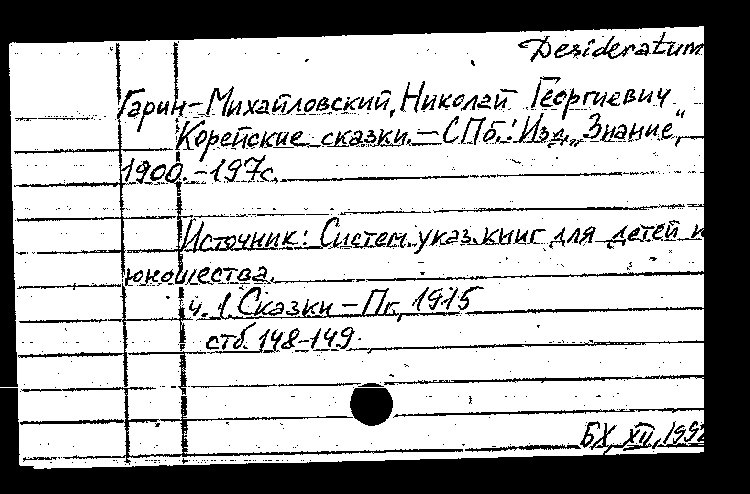 Desideratum
Гарин-Михайловский, Николай Георгиевич
Корейские сказки. — СПб.: Изд. „Знание",
1900. - 197с.
Источник: Систем. указ. книг для детей и
юношества.
ч. 1. Сказки — Пг., 1915
стб. 148-149.
БХ, XII, 1992